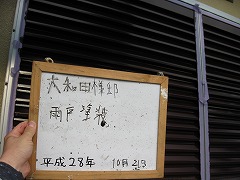 大和田様邸
雨戸塗装
平成28年 10月213